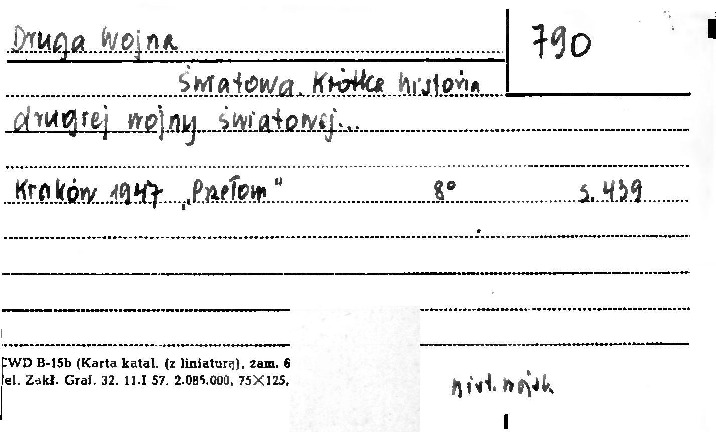 Druga Wojna
790
Światowa. Krótka historia
drugiej wojny światowej...
Kraków 1947 „Przełom" 8° s. 439
CWD B-15b (Karta katal. (z liniaturą), zam. 6
Zakł. Graf. 32. 11.I 57. 2.085.000, 75×125,